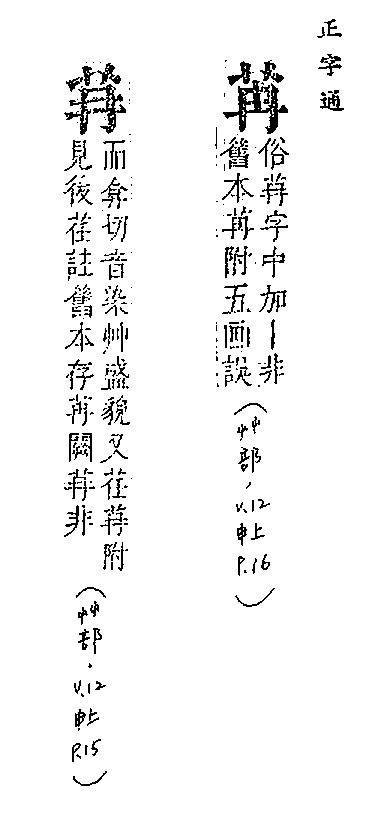 正字通
苒
俗䒣字中加丨非
舊本苒附五画誤
(艸部,V.12申上P.16)
䒣
而弇切音染艸盛貌又荏䒣附
見後荏註舊本存苒闕䒣非
(艸部,V.12申上P.15)